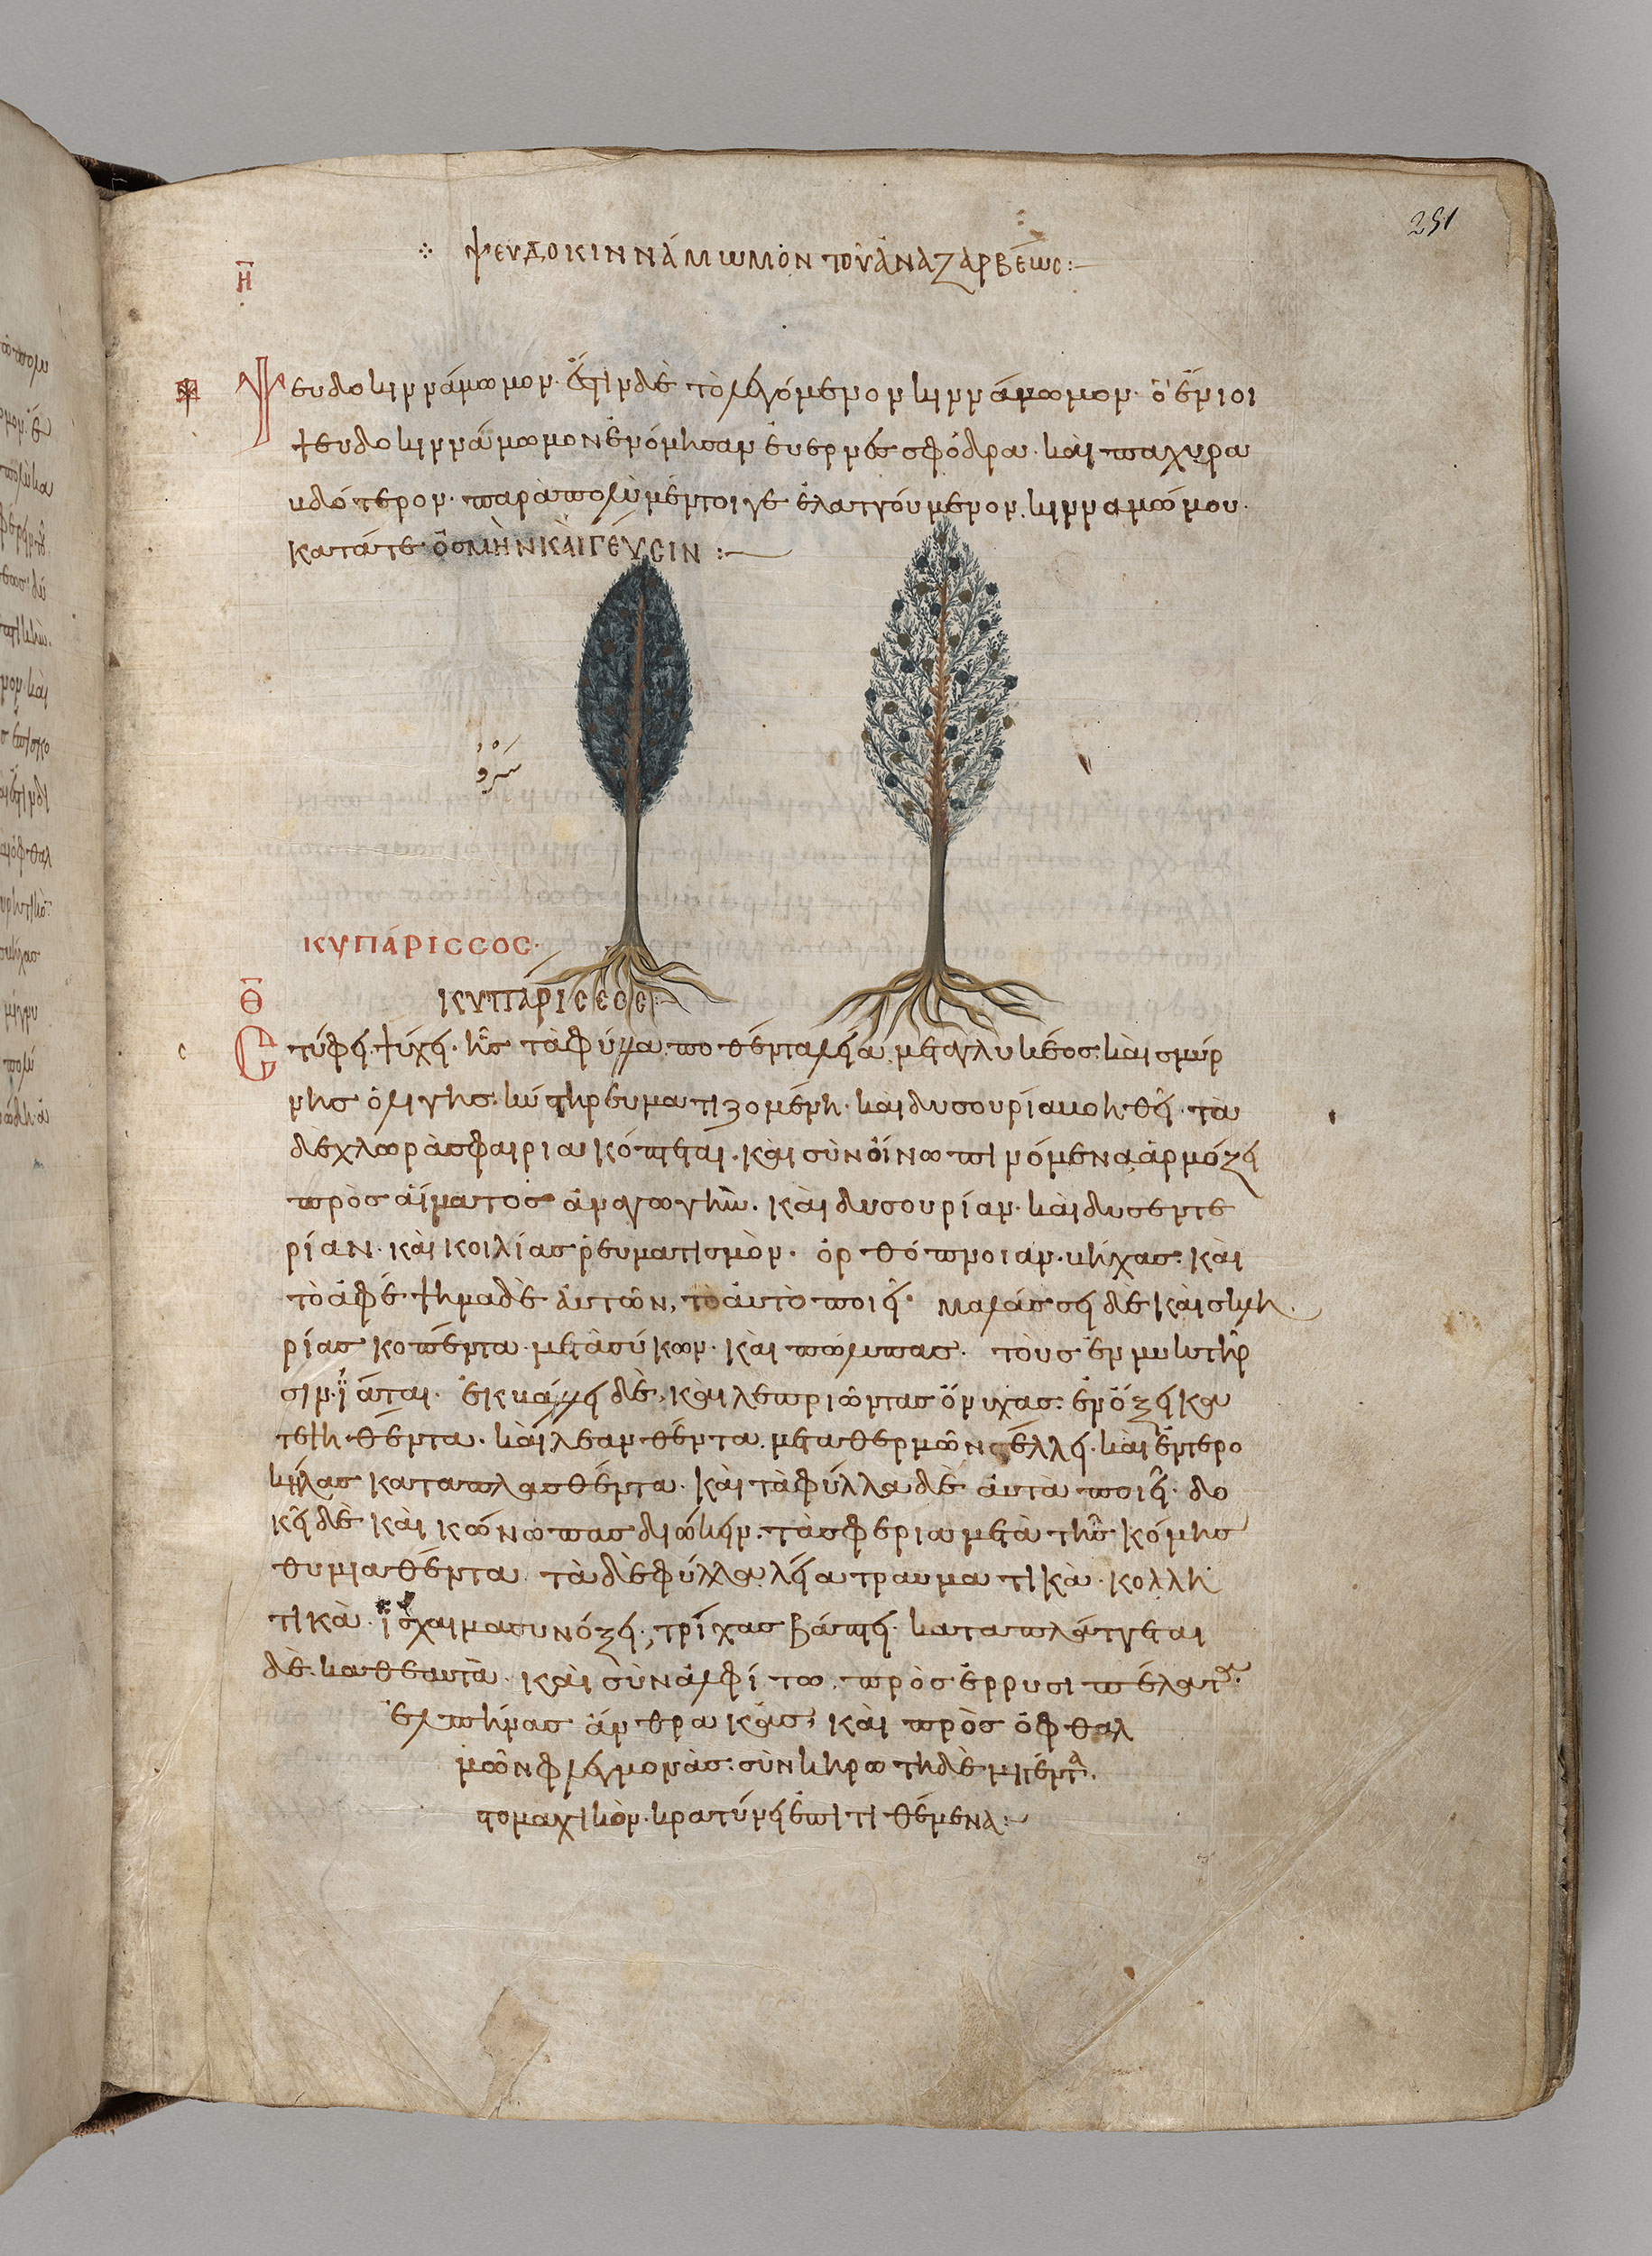 251
ψευδοκιννάμωμον τοῦ ἀναζαρβέως:
Η
Ψευδοκιννάμωμον· ἔστιν δὲ τὸ λεγόμενον κιννάμωμον· ὃ ἔνιοι
ψευδοκιννάμωμον ἐνόμησαν εὐερνὲς σφόδρα· καὶ παχυρα
υδότερον· παρὰ πολὺ μέντοιγε ἐλαττούμενον κινναμώμου·
κατά τε ὀσμὴν καὶ γεύσιν:
سرو
ΚΥΠΆΡΙССΟС·
Θ
ΚΥΠΆΡΙССΟС
Στύφει ψύχει· ἧς τὰ φύλλα ποθέντα λεῖα μετὰ γλυκέος· καὶ σμύρ
νης ὀλίγης· κύστιν ῥευματιζομένη· καὶ δυσουρία βοηθεῖ· τὰ
δὲ χλωρὰ σφαιρία κόπτεται· καὶ σὺν οἴνω πινόμενα ἁρμόζει
πρὸς αἵματος ἀναγωγὴν· καὶ δυσουρίαν· καὶ δυσεντε
ρίαν· καὶ κοιλίας ῥευματισμὸν· ὀρθόπνοιαν· βῆχας· καὶ
τὸ ἀφέψημα δὲ αὐτῶν, τὸ αὐτὸ ποιεῖ· μαλάσσει δὲ καὶ σκλη
ρίας κοπέντα· μετὰ σύκων· καὶ πώλυπας· τοὺς ἐν μυκτῆρ
σιν ἰᾶται· ἐκβάλλει δὲ, καὶ λεπριῶντας ὄνυχας· ἐν ὄξει κα
τεψηθέντα· καὶ λεανθέντα μετὰ θερμῶν στέλλει· καὶ ἐντερο
κήλας καταπλασθέντα· καὶ τὰ φύλλα δὲ αὐτὰ ποιεῖ· δο
κεῖ δὲ καὶ κώνωπας διώκειν· τὰ σφερία μετὰ τῆς κόμης
θυμιαθέντα· τὰ δὲ φύλλα λεῖα τραυματικὰ· κολλη
τικὰ· ἴσχαιμα συν όξει· τρίχας βάπτει· καταπλάττεται
δὲ· καθεαυτὰ· καὶ σὺν ἀλφίτω, πρὸς ἐρρυσιπέλατα·
ἑλπήνας ἄνθρακας· καὶ πρὸς ὀφθαλ
μῶν φλεγμονὰς· σὺν κηρωτῆ δὲ μιγέντα·
στομαχικὸν· κρατύνει ἐπιτιθέμενα: